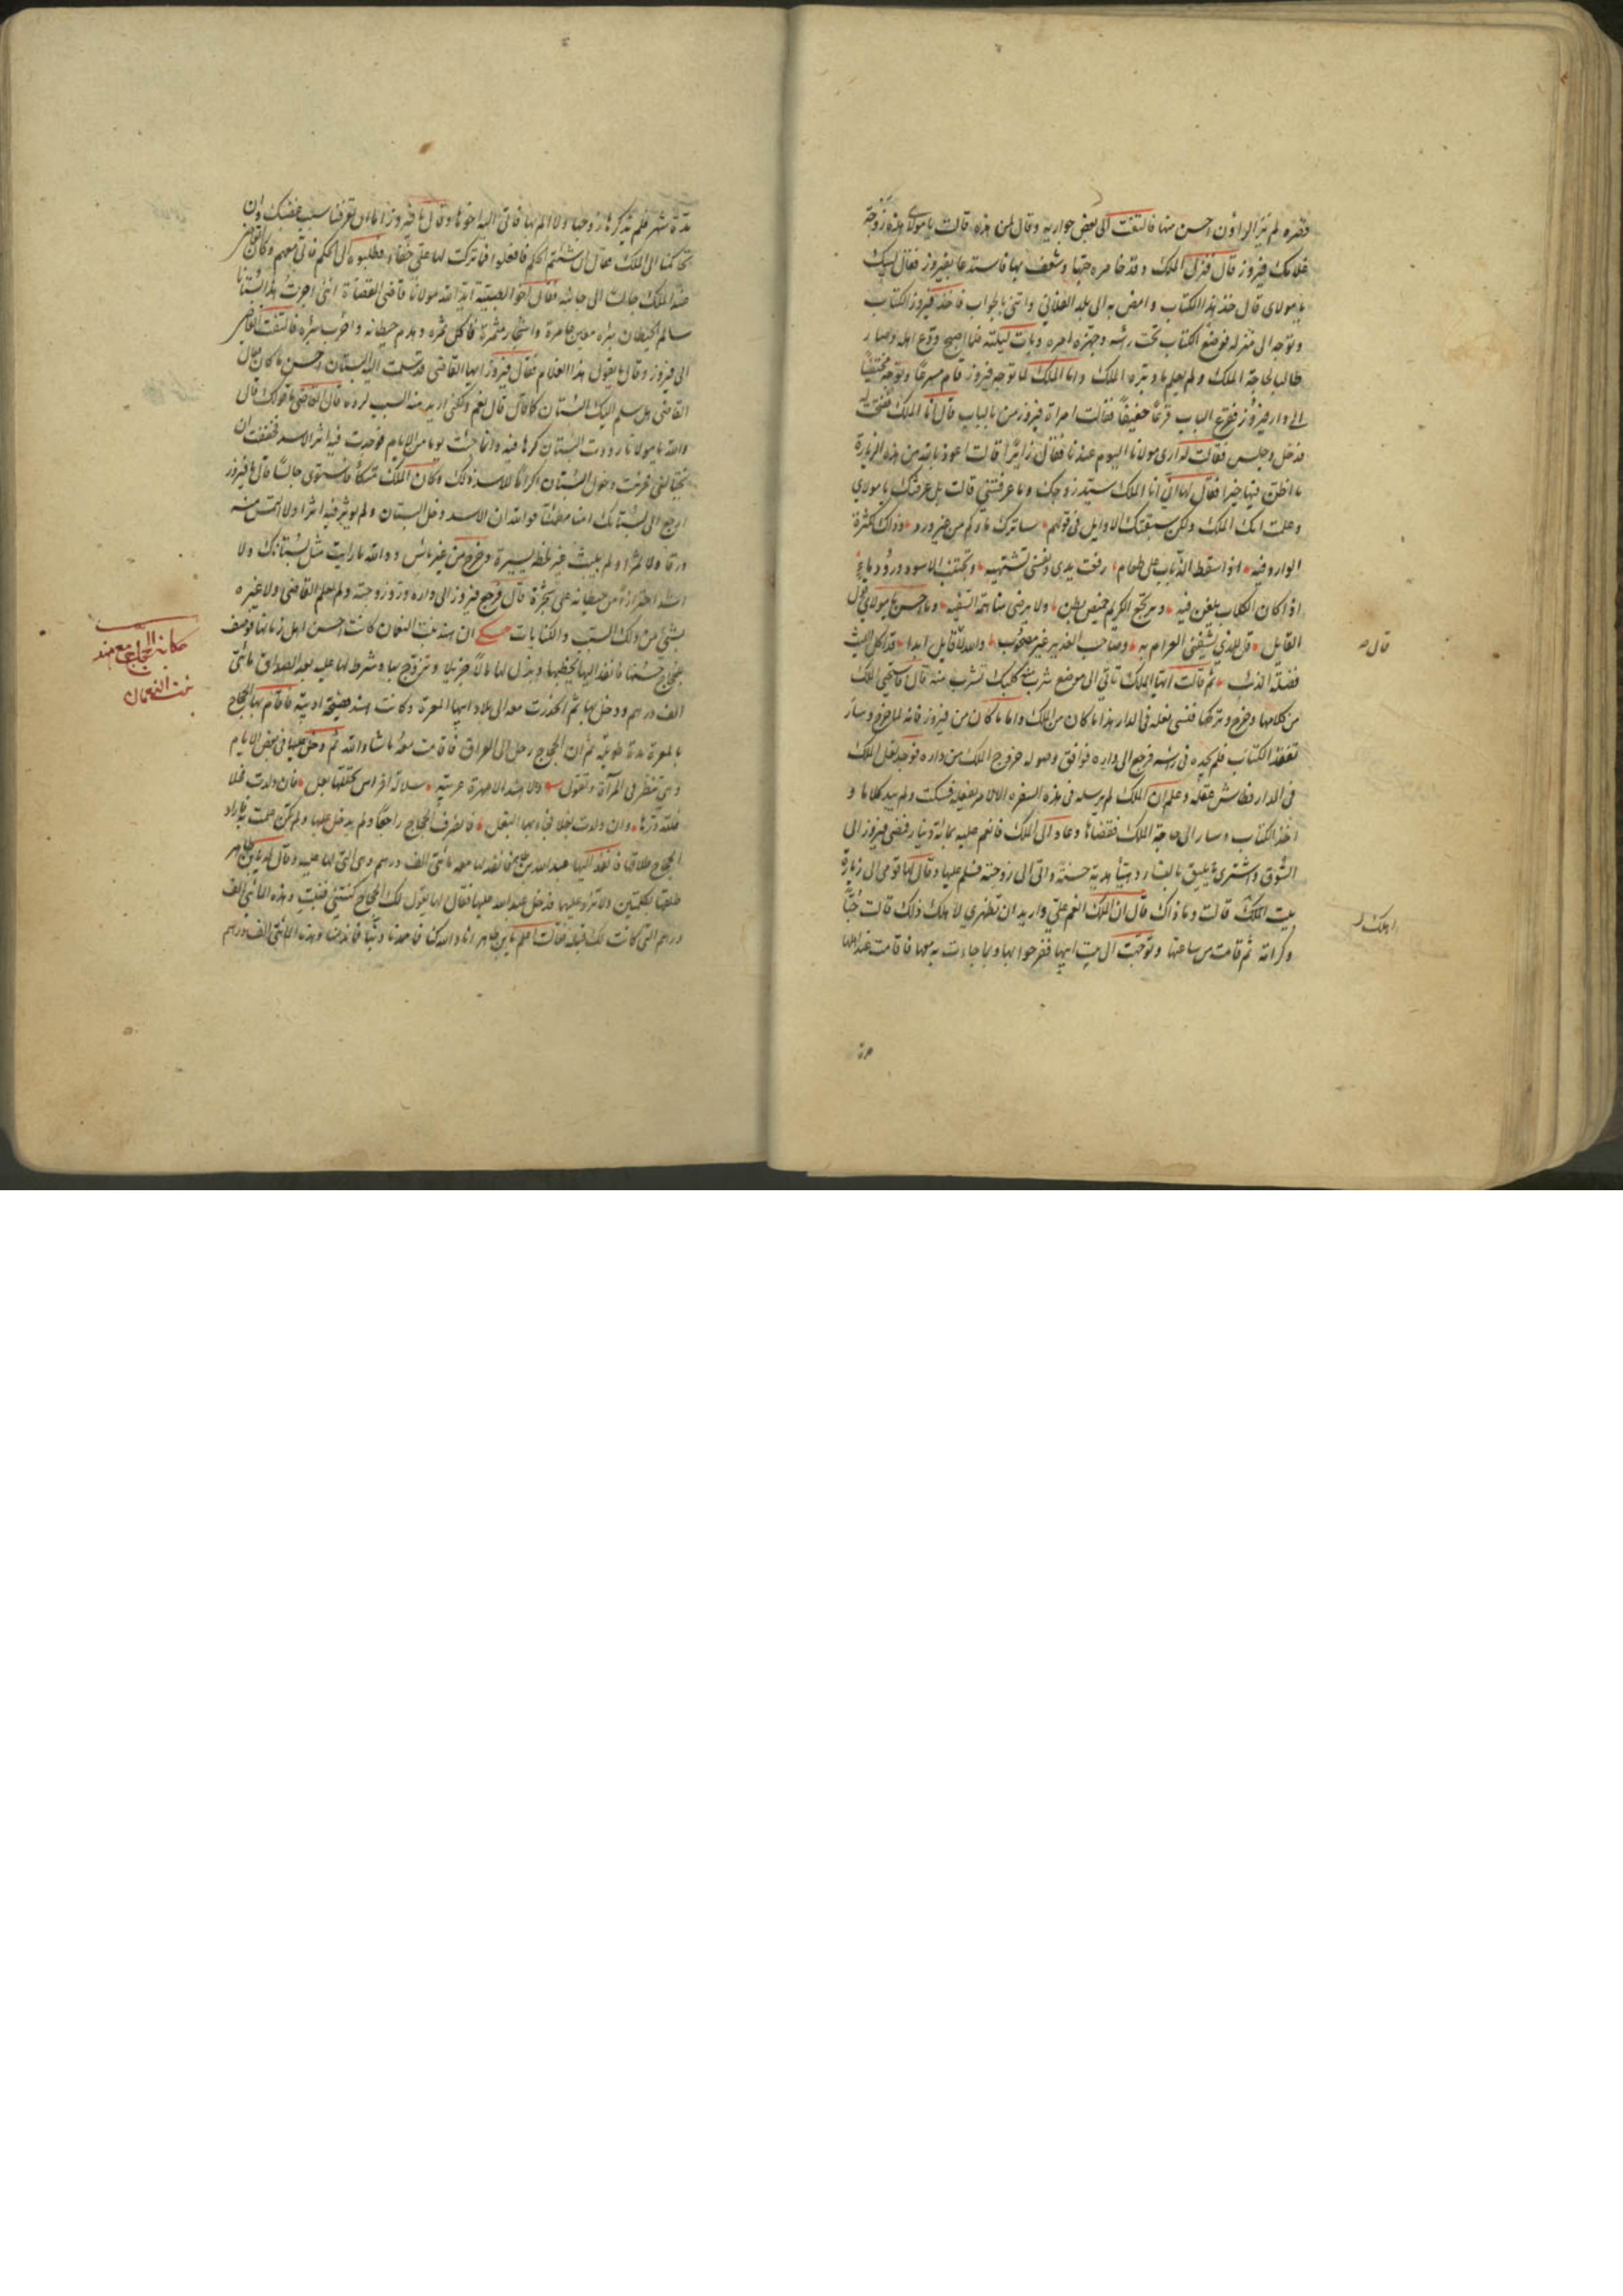 قصره لم ير الراؤن احسن منها فالتفت الى بعض جواريه وقال لمن هذه قالت يا مولاى هذه زوجة
غلامك فيروز قال فنزل الملك وقد خامره حبها وشغف بها فاستدعا بفيروز فقال لبيك
يا مولاى قال خذ هذا الكتاب وامض به الى بلد الفلانى وائتنى بالجواب فاخذ فيروز الكتاب
وتوجه الى منزله فوضع الكتاب تحت رأسه وجهزه امره وبات ليلته فلما اصبح ودع اهله وصار
طالبا لحاجة الملك ولم يعلم ما دبره الملك واما الملك لما توجه فيروز قام مسرعًا وتوجه مختفيًا
الى دار فيروز فقرع الباب قرعًا خفيفًا فقالت امراة فيروز من بالباب قال انا الملك ففتحت له
فدخل وجلس فقالت له ارى مولانا اليوم عندنا فقال زائرًا قالت اعوذ بالله من هذه الزيارة
ما اظن فيها خيرا فقال لها انى انا الملك سيد زوجك وما عرفتنى قالت بل عرفتك يا مولاى
وعلمت انك الملك ولكن سبقتك الاوايل فى قولهم ساترك ماءكم من غير ورد وذاك لكثرة
الوارد فيه اذا سقط الذباب على طعام رفعت يدى ونفسى تشتهيه وتجتنب الاسود ورود ماء
اذا كان الكلاب يلغن فيه ويرتجع الكريم خميص بطن ولا يرضى مساهمة السفيه وما احسن يا مولاى قول
القايل قل للذى شفنى الغرام به وصاحب الغدر غير مصحوب والله لا قايل ابدا قد اكل الليث
فضلة الذئب ثم قالت ايها الملك تاتى الى موضع شرب منه كلبك تشرب منه قال فاستحى الملك
من كلامها وخرج وتركها فنسى نعله فى الدار هذا ما كان من الملك واما ما كان من فيروز فانه لما خرج وسار
تفقد الكتاب فلم يجده فى راسه فرجع الى داره فوافق وصوله خروج الملك من داره فوجد نعل الملك
فى الدار فطاش عقله وعلم ان الملك لم يرسله فى هذه السفره الا لامر يفعله فسكت ولم يبد كلاما و
اخذ الكتاب وسار الى حاجة الملك فقضاها وعاد الى الملك فانعم عليه بمائة دينار فمضى فيروز الى
السوق واشترى ما يليق بالنساء وهيأ هدية حسنة واتى الى زوجته فسلم عليها وقال لها قومى الى زيارة
بيت اهلك قالت وما ذاك قال ان الملك انعم على واريد ان تظهرى لاهلك ذلك قالت حبًا
وكرامة ثم قامت من ساعتها وتوجهت الى بيت ابيها ففرحوا بها وبما جاءت به معها فاقامت عند اهلها
قال
اهلك
مدة
مدة شهر فلم يذكرها زوجها ولا الم بها فاتى اليه اخوها وقال يا فيروز اما ان تعرفنا سبب غضبك وان
تحاكمنا الى الملك فقال ان شئتم الحكم فافعلوا فما تركت لها على حقًا فطلبوه الى الحكم فاتى معهم وكان القاضى
عند الملك جالسا الى جانبه فقال اخو الصبية ايد الله مولانا قاضى القضاة انى اجرت هذا بستانا
سالم الحيطان ببئر معين عامرة واشجار مثمرة فاكل ثمره وهدم حيطانه واخرب بئره فالتفت القاضى
الى فيروز وقال ما يقول هذا الغلام فقال فيروز ايها القاضى قد سلمت اليه البستان احسن ما كان فقال
القاضى هل سلم اليك البستان كما كان قال نعم ولكنى اريد منه السبب لرده قال القاضى ما قولك قال
والله يا مولانا ما رددت البستان كرها فيه وانما جئت يوما من الايام فوجدت فيه اثر الاسد فخفت ان
يغتالنى فحرمت دخول البستان اكرامًا للاسد وكان الملك متكأ فاستوى جالسًا قال يا فيروز
ارجع الى بستانك امنا مطمئنًا فوالله ان الاسد دخل البستان ولم يوثر فيه اثرا ولا التمس منه
ورقا ولا ثمرا ولم يلبث غير لحظة يسيرة وخرج من غير بأس ووالله ما رايت مثل بستانك ولا
اشد احترازًا من حيطانه على شجره قال فرجع فيروز الى داره ورد زوجته ولم يعلم القاضى ولا غيره
بشىء من ذلك السبب والكنايات حكى ان هند بنت النعمان كانت احسن اهل زمانها فوصف
للحجاج حسنها فانفذ اليها يخطبها وبذل لها مالًا جزيلا وتزوج بها وشرط لها عليه بعد الصداق مائتى
الف درهم ودخل بها ثم انحدرت معه الى بلاد ابيها المعرة وكانت هند فصيحة اديبة فاقام بها الحجاج
بالمعرة مدة طويلة ثم ان الحجاج رحل الى العراق فاقامت معه ما شاء الله ثم دخل عليها فى بعض الايام
وهى تنظر فى المرآة وتقول وما هند الا مهرة عربية سلالة افراس تحللها بغل فان ولدت فحلا
فلله درها وان ولدت بغلا فجاء بها البغل فانصرف الحجاج راجعًا ولم يدخل عليها ولم تكن علمت به فاراد
الحجاج طلاقها فانفذ اليها عبدالله بن طاهر فانفذ لها معه مائتى الف درهم وهى التى لها عليه وقال له يا ابن طاهر
طلقها بكلمتين ولا تزد عليها فدخل عبدالله عليها فقال لها يقول لك الحجاج كنت فبنت وهذه المائتى الف
درهم التى كانت لك قبله فقالت اعلم يا ابن طاهر انا والله كنا فما حمدنا وبنا فما ندمنا وهذه المائتى الف درهم
حكاية الحجاج مع هند
بنت النعمان